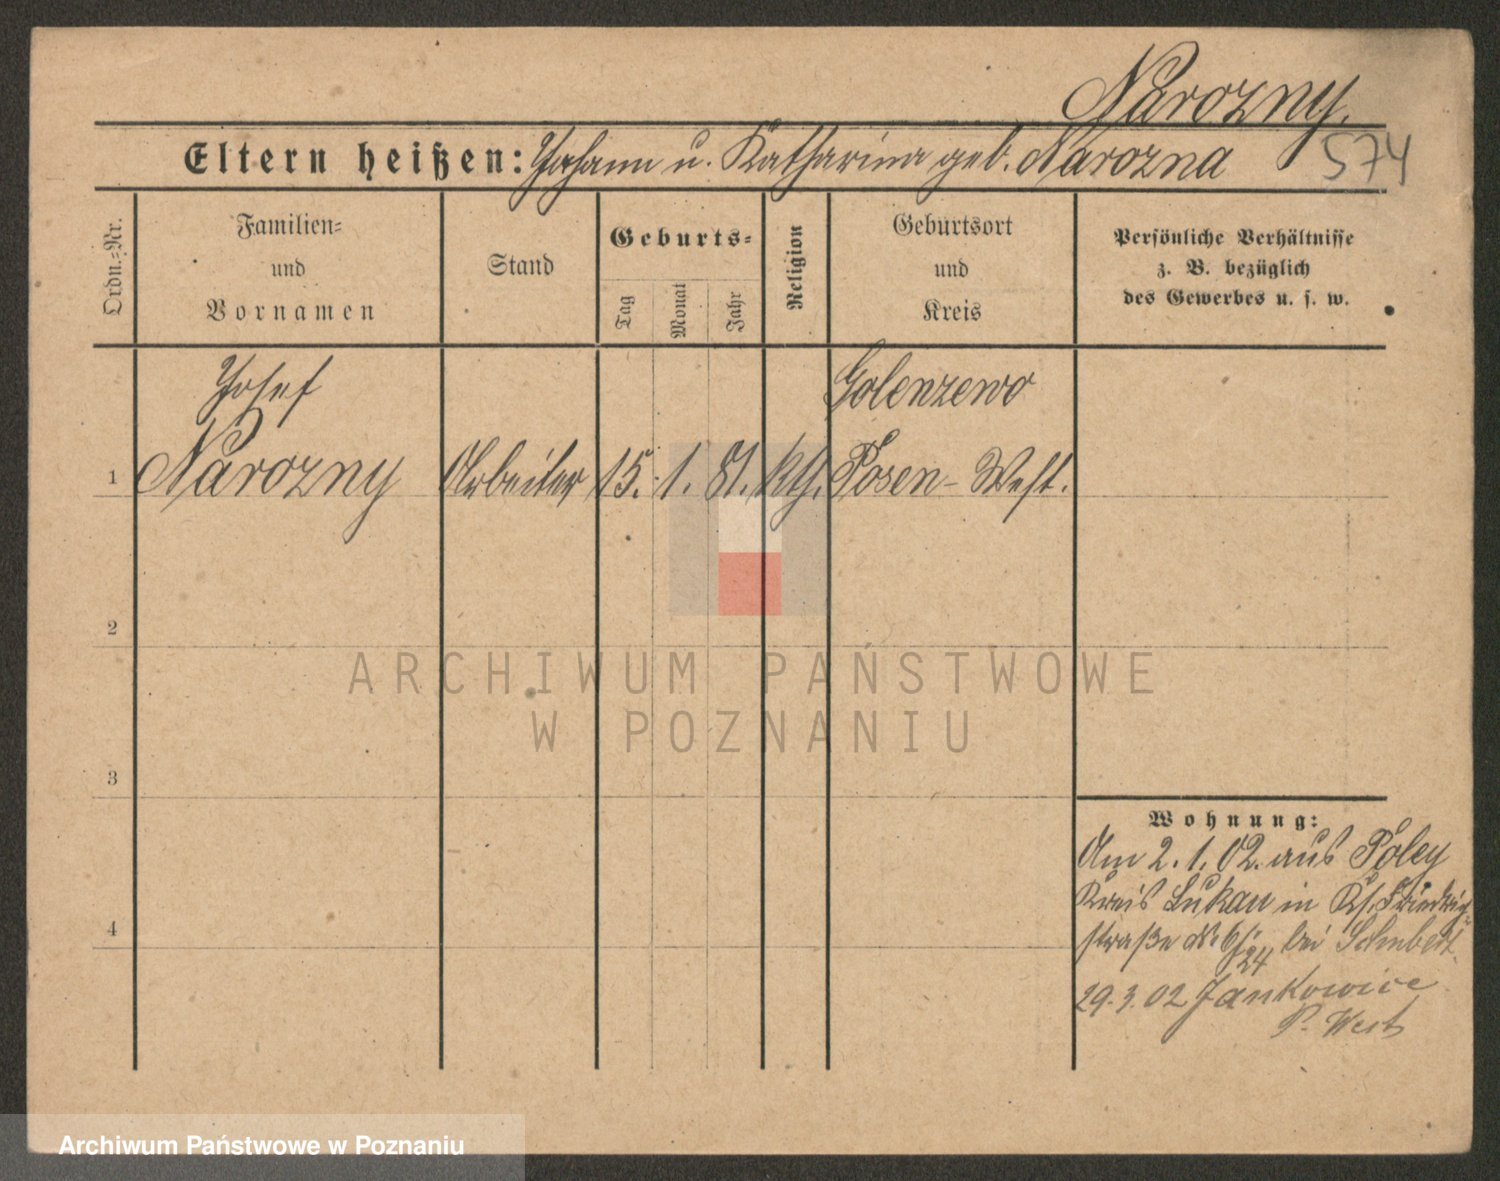 Narozny.
Eltern heißen: Johann u. Katharina geb. Narozna
574
Ordn.-Nr.
Familien-
und
Vornamen
Stand
Geburts-
Tag
Monat
Jahr
Religion
Geburtsort
und
Kreis
Persönliche Verhältnisse
z. B. bezüglich
des Gewerbes u. s. w.
Josef
Golenzewo
1 Narozny Arbeiter 15. 1. 81. kth. Posen-West.
2
3
4
Wohnung:
Am 2.1.02. aus Poley
Kreis Lukau in Friedrich-
straße bei Schubert.
29.3.02 Jankowice
P. West
ARCHIWUM PAŃSTWOWE
W POZNANIU
Archiwum Państwowe w Poznaniu